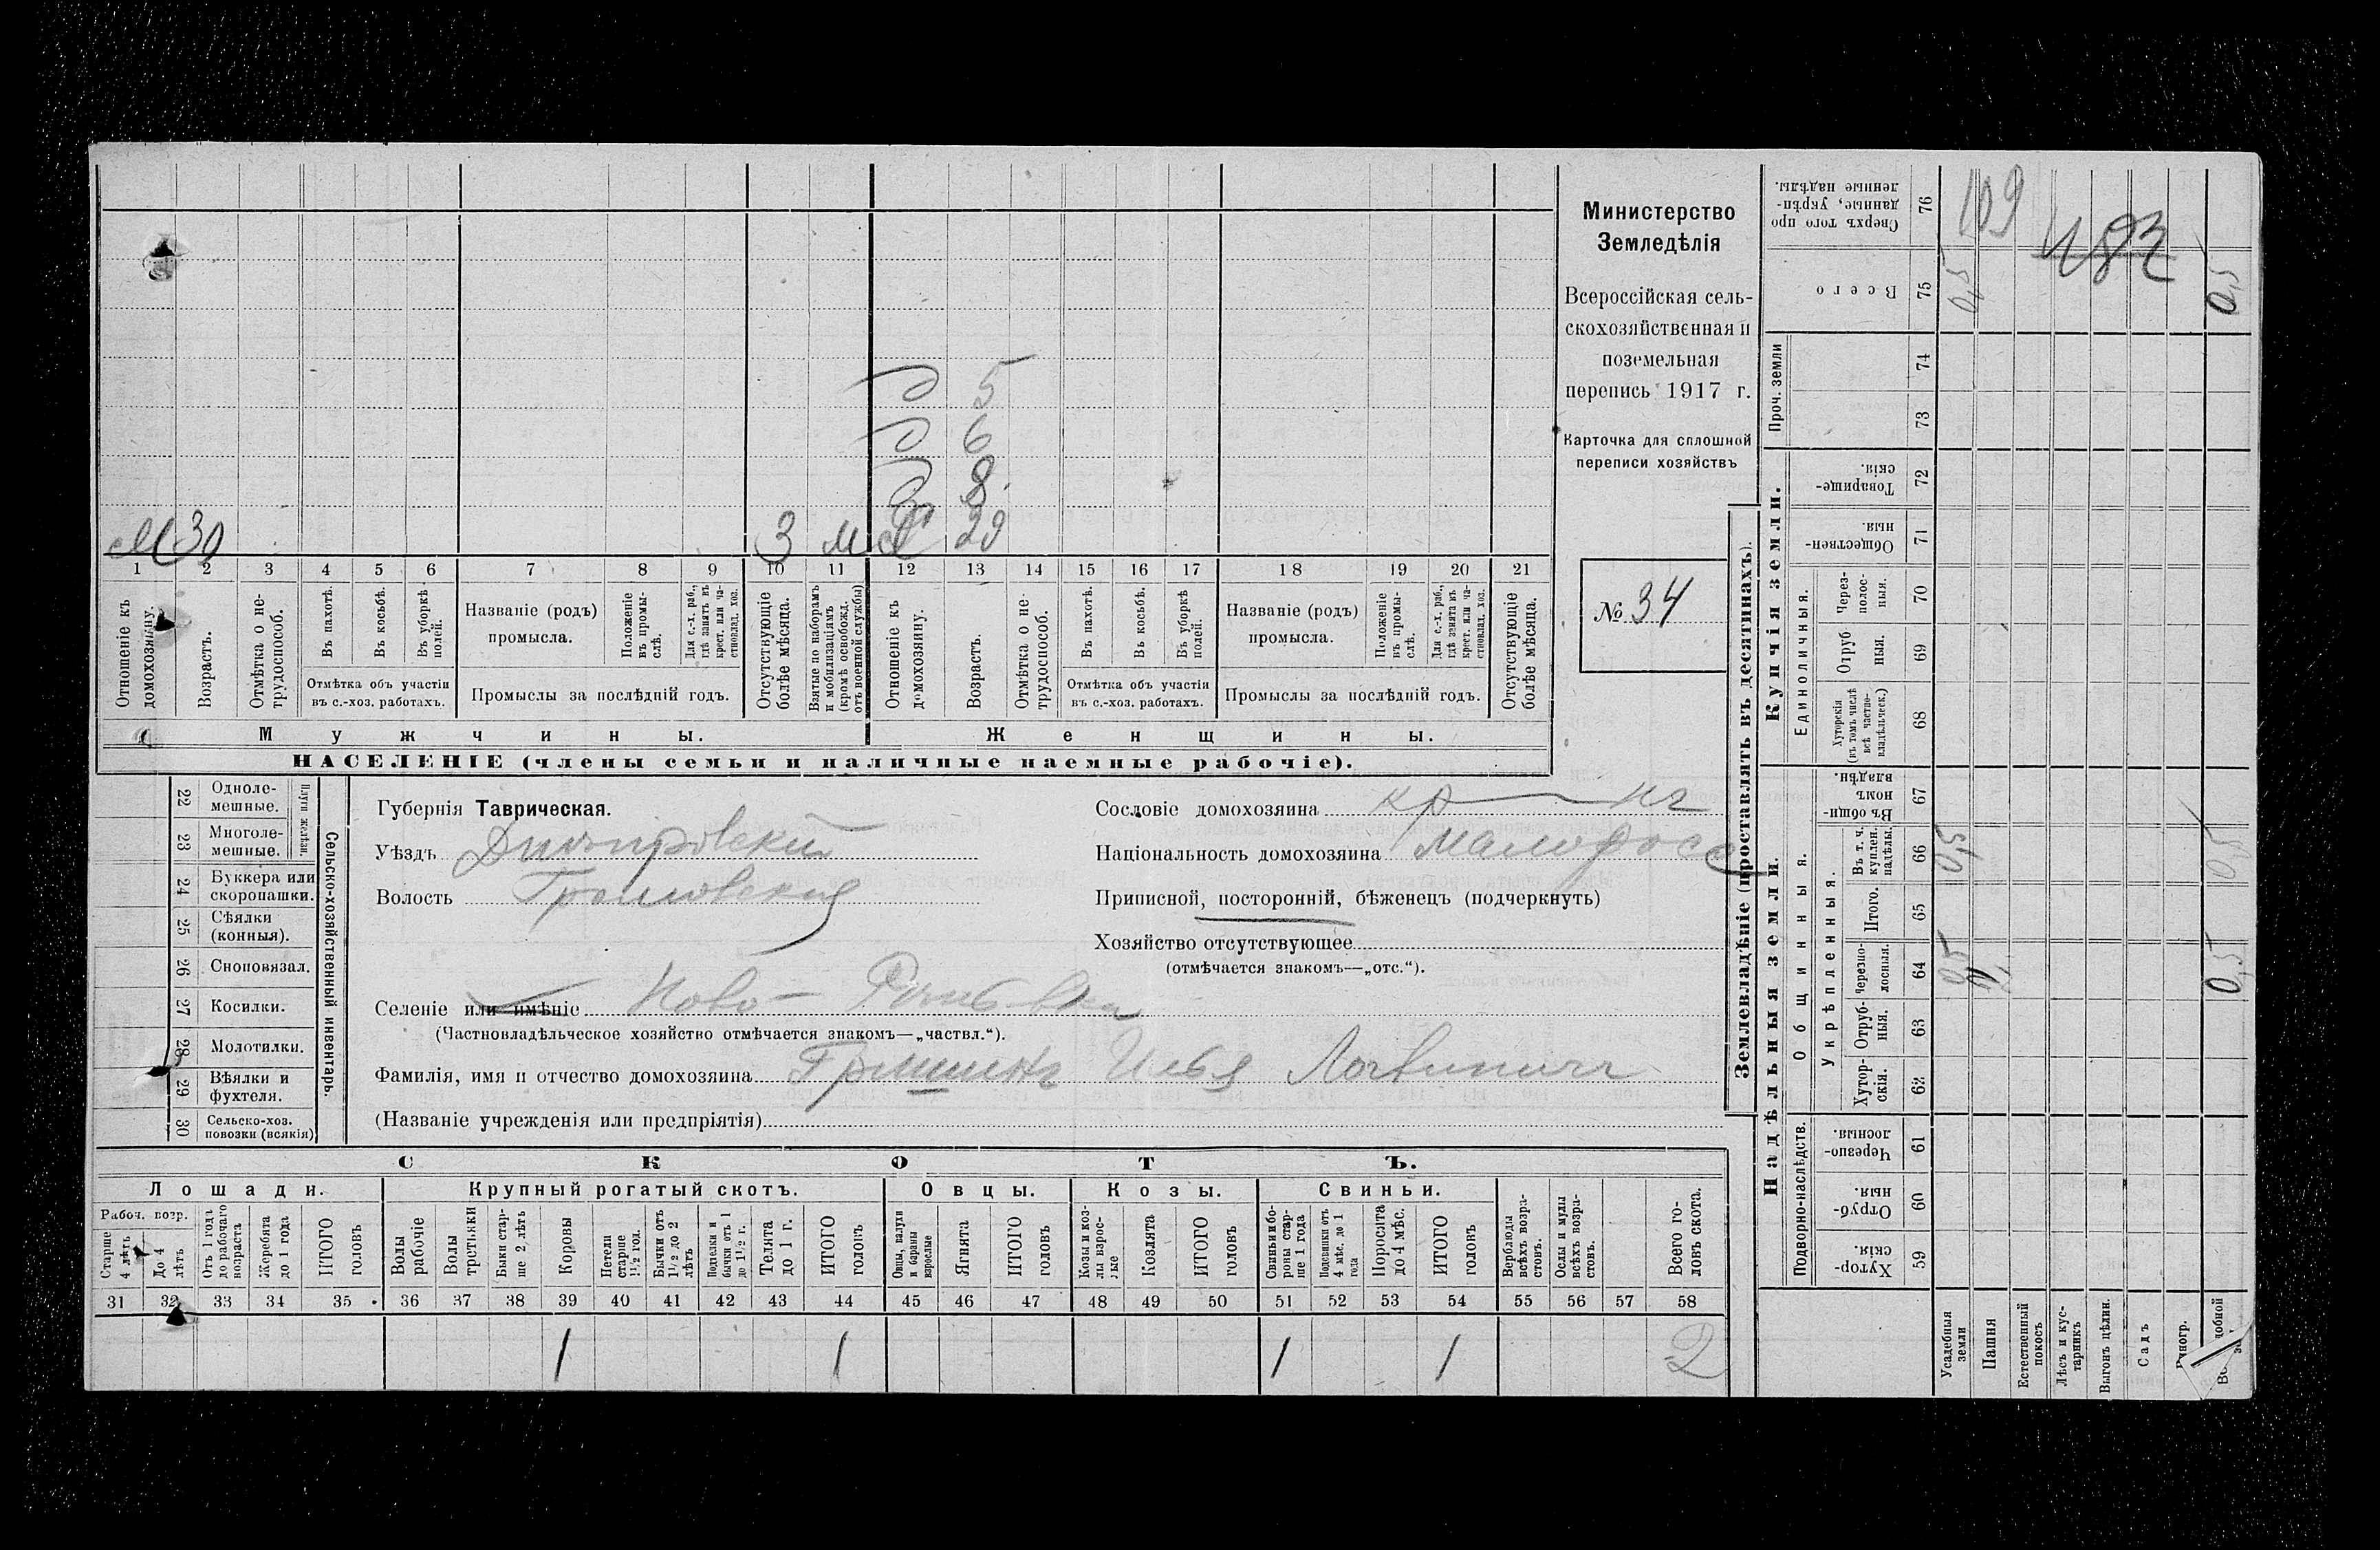 Министерство
Земледѣлія
Всероссійская сель-
скохозяйственная и
поземельная
перепись 1917 г.
Карточка для сплошной
переписи хозяйствъ
№ 34
д 5
д 6
д 8
М 30 3 м
1 2 3 4 5 6 7 8 9 10 11 12 13 14 15 16 17 18 19 20 21
Отношеніе къ домохозяину.
Возрастъ.
Отмѣтка о не-трудоспособ.
Въ пахотѣ.
Въ косьбѣ.
Въ уборкѣ полей.
Отмѣтка объ участіи
въ с.-хоз. работахъ.
Названіе (родъ)
промысла.
Положеніе въ промы-слѣ.
Для с.-х. раб., гдѣ занятъ въ крест. или ча-стновлад. хоз.
Промыслы за послѣдній годъ.
Отсутствующіе болѣе мѣсяца.
Взятые по наборамъ и мобилизаціямъ (кромѣ освобожд. отъ военной службы)
Отношеніе къ домохозяину.
Возрастъ.
Отмѣтка о не-трудоспособ.
Въ пахотѣ.
Въ косьбѣ.
Въ уборкѣ полей.
Отмѣтка объ участіи
въ с.-хоз. работахъ.
Названіе (родъ)
промысла.
Положеніе въ промы-слѣ.
Для с.-х. раб., гдѣ занята въ крест. или ча-стновлад. хоз.
Промыслы за послѣдній годъ.
Отсутствующіе болѣе мѣсяца.
Мужчины. Женщины.
НАСЕЛЕНІЕ (члены семьи и наличные наемные рабочіе).
Сельско-хозяйственный инвентарь.
Плуги желѣзн.
22 Одноле-мешные.
23 Многоле-мешные.
24 Буккера или скоропашки.
25 Сѣялки (конныя).
26 Сноповязал.
27 Косилки.
28 Молотилки.
29 Вѣялки и фухтеля.
30 Сельско-хоз. повозки (всякія)
Губернія Таврическая.
Уѣздъ Днѣпровскій
Волость Громовская
Сословіе домохозяина кр-нъ
Національность домохозяина малоросс
Приписной, посторонній, бѣженецъ (подчеркнуть)
Хозяйство отсутствующее
(отмѣчается знакомъ—„отс.“).
Селеніе или имѣніе Ново-
(Частновладѣльческое хозяйство отмѣчается знакомъ—„частвл.“).
Фамилія, имя и отчество домохозяина Гришинъ Илья Логвиничъ
(Названіе учрежденія или предпріятія)
СКОТЪ.
Лошади. Крупный рогатый скотъ. Овцы. Козы. Свиньи.
Рабоч. возр.
Старше 4 лѣтъ
До 4 лѣтъ
Отъ 1 года до рабочаго возраста
Жеребята до 1 года
ИТОГО головъ
Волы рабочіе
Волы третьяки
Быки стар-ше 2 лѣтъ
Коровы
Нетели старше 1 1/2 год.
Бычки отъ 1 1/2 до 2 лѣтъ
Подтелки и бычки отъ 1 до 1 1/2 г.
Телята до 1 г.
ИТОГО головъ
Овцы, валухи и бараны взрослые
Ягнята
ИТОГО головъ
Козы и коз-лы взрос-лые
Козлята
ИТОГО головъ
Свиньи и бо-ровы стар-ше 1 года
Подсвинки отъ 4 мѣс. до 1 года
Поросята до 4 мѣс.
ИТОГО головъ
Верблюды всѣхъ возра-стовъ.
Ослы и мулы всѣхъ возра-стовъ.
Всего го-ловъ скота.
31 32 33 34 35 36 37 38 39 40 41 42 43 44 45 46 47 48 49 50 51 52 53 54 55 56 57 58
1 1 1 1 2
Землевладѣніе (проставлять въ десятинахъ).
Купчія земли.
Надѣльныя земли.
Сверхъ того про-данные, укрѣп-ленные надѣлы. 76
Всего 75
Проч. земли
74
73
Товарище-скія. 72
Обществен-ныя. 71
Единоличныя.
Через-полос-ныя. 70
Отруб-ныя. 69
Хуторскія (въ томъ числѣ всѣ частно-владѣльческ.) 68
Общинныя.
Въ общи-номъ владѣн. 67
Укрѣпленныя.
Въ т. ч. куплен. надѣлы. 66
Итого. 65
Черезпо-лосныя. 64
Отруб-ныя. 63
Хутор-скія. 62
Подворно-наслѣдств.
Черезпо-лосныя. 61
Отруб-ныя. 60
Хутор-скія. 59
Усадебныя земли
Пашня
Естественный покосъ
Лѣсъ и кус-тарникъ
Выгонъ цѣлин.
Садъ
109
0,5 0,5
0,5 0,5
0,5 0,5